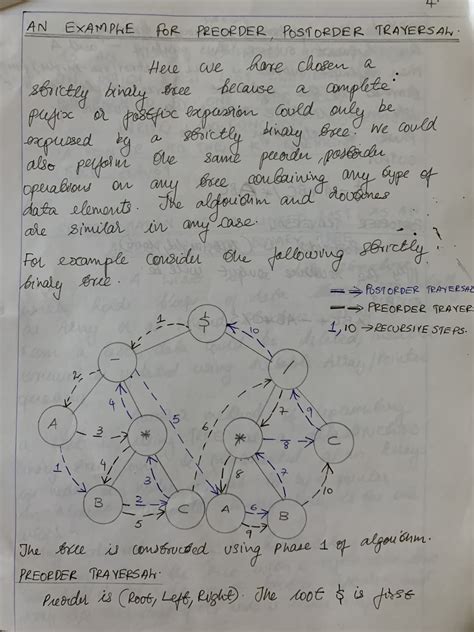 4
AN EXAMPLE FOR PREORDER, POSTORDER TRAVERSAL.
Here we have chosen a
strictly binary tree because a complete
prefix or postfix expression could only be
expressed by a strictly binary tree. We could
also perform the same preorder, postorder
operations on any tree containing any type of
data elements. The algorithm and routines
are similar in any case.
For example consider the following strictly
binary tree.
→ POSTORDER TRAVERSAL
→ PREORDER TRAVER
1, 10 → RECURSIVE STEPS.
1 $ 10
2 - /
4 5 6 7 9
A 3 * * 8 C
1 4 3 8 7
B 2 C A 6 B 10
5 9
The tree is constructed using Phase 1 of algorithm.
PREORDER TRAVERSAL.
Preorder is (Root, Left, Right). The root $ is first